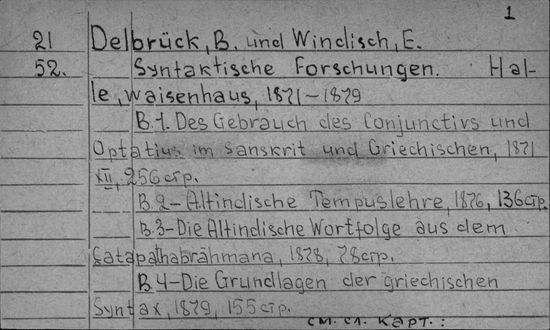 1
21 Delbrück, B. und Windisch, E.
52. Syntaktische Forschungen. Hal-
le, Waisenhaus, 1871-1879
B.1. Des Gebrauch des Conjunctivs und
Optatius im Sanskrit und Griechischen, 1871
XII, 256 стр.
B.2-Altindische Tempuslehre, 1876, 136 стр.
B.3-Die Altindische Wortfolge aus dem
Çatapathabrāhmana, 1878, 78 стр.
B.4-Die Grundlagen der griechischen
Syntax, 1879, 155 стр.
см. сл. карт.: